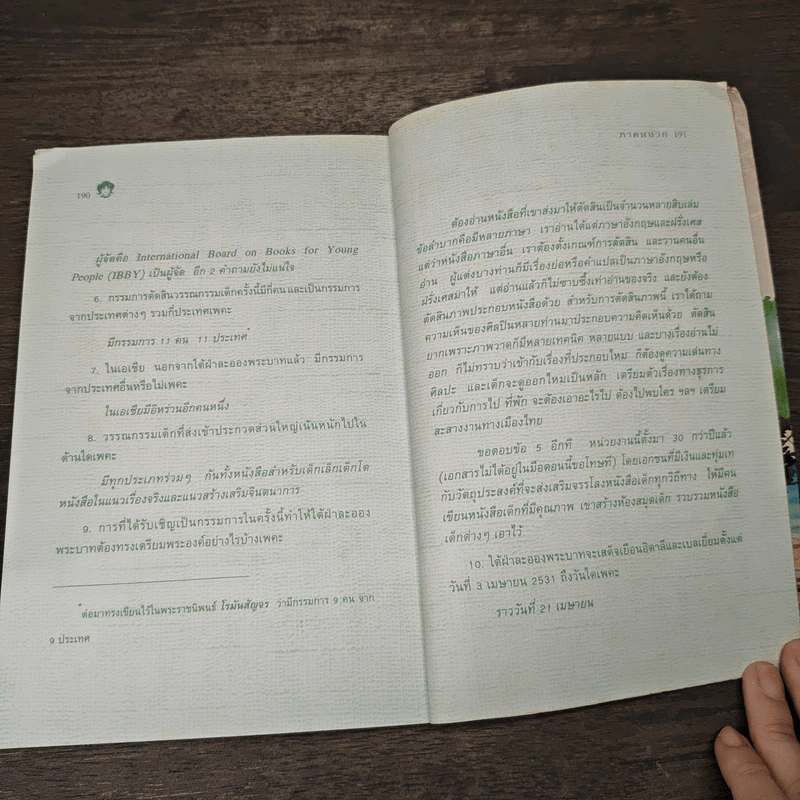 190
ผู้จัดคือ International Board on Books for Young
People (IBBY) เป็นผู้จัด อีก 2 คำถามยังไม่แน่ใจ
6. กรรมการตัดสินวรรณกรรมเด็กครั้งนี้มีกี่คน และเป็นกรรมการ
จากประเทศต่างๆ รวมกี่ประเทศเพคะ
มีกรรมการ 11 คน 11 ประเทศ*
7. ในเอเชีย นอกจากใต้ฝ่าละอองพระบาทแล้ว มีกรรมการ
จากประเทศอื่นหรือไม่เพคะ
ในเอเชียมีอิหร่านอีกคนหนึ่ง
8. วรรณกรรมเด็กที่ส่งเข้าประกวดส่วนใหญ่เน้นหนักไปใน
ด้านใดเพคะ
มีทุกประเภทร่วมๆ กันทั้งหนังสือสำหรับเด็กเล็กเด็กโต
หนังสือในแนวเรื่องจริงและแนวสร้างเสริมจินตนาการ
9. การที่ได้รับเชิญเป็นกรรมการในครั้งนี้ทำให้ใต้ฝ่าละออง
พระบาทต้องทรงเตรียมพระองค์อย่างไรบ้างเพคะ
*ต่อมาทรงเขียนไว้ในพระราชนิพนธ์ โรมันสัญจร ว่ามีกรรมการ 9 คน จาก
9 ประเทศ
ภาคผนวก 191
ต้องอ่านหนังสือที่เขาส่งมาให้ตัดสินเป็นจำนวนหลายสิบเล่ม
ข้อลำบากคือมีหลายภาษา เราอ่านได้แต่ภาษาอังกฤษและฝรั่งเศส
แต่ว่าหนังสือภาษาอื่น เราต้องตั้งเกณฑ์การตัดสิน และวานคนอื่น
อ่าน ผู้แต่งบางท่านก็มีเรื่องย่อหรือคำแปลเป็นภาษาอังกฤษหรือ
ฝรั่งเศสมาให้ แต่อ่านแล้วก็ไม่ซาบซึ้งเท่าอ่านของจริง และยังต้อง
ตัดสินภาพประกอบหนังสือด้วย สำหรับการตัดสินภาพนี้ เราได้ถาม
ความเห็นของศิลปินหลายท่านมาประกอบความคิดเห็นด้วย ตัดสิน
ยากเพราะภาพวาดก็มีหลายเทคนิค หลายแบบ และบางเรื่องอ่านไม่
ออก ก็ไม่ทราบว่าเข้ากับเรื่องที่ประกอบไหม ก็ต้องดูความเด่นทาง
ศิลปะ และเด็กจะดูออกไหมเป็นหลัก เตรียมตัวเรื่องทางธุรการ
เกี่ยวกับการไป ที่พัก จะต้องเอาอะไรไป ต้องไปพบใคร ฯลฯ เตรียม
สะสางงานทางเมืองไทย
ขอตอบข้อ 5 อีกที หน่วยงานนี้ตั้งมา 30 กว่าปีแล้ว
(เอกสารไม่ได้อยู่ในมือตอนนี้ขอโทษที) โดยเอกชนที่มีเงินและทุ่มเท
กับวัตถุประสงค์ที่จะส่งเสริมจรรโลงหนังสือเด็กทุกวิถีทาง ให้มีคน
เขียนหนังสือเด็กที่มีคุณภาพ เขาสร้างห้องสมุดเด็ก รวบรวมหนังสือ
เด็กต่างๆ เอาไว้
10. ใต้ฝ่าละอองพระบาทจะเสด็จเยือนอิตาลีและเบลเยี่ยมตั้งแต่
วันที่ 3 เมษายน 2531 ถึงวันใดเพคะ
ราววันที่ 21 เมษายน